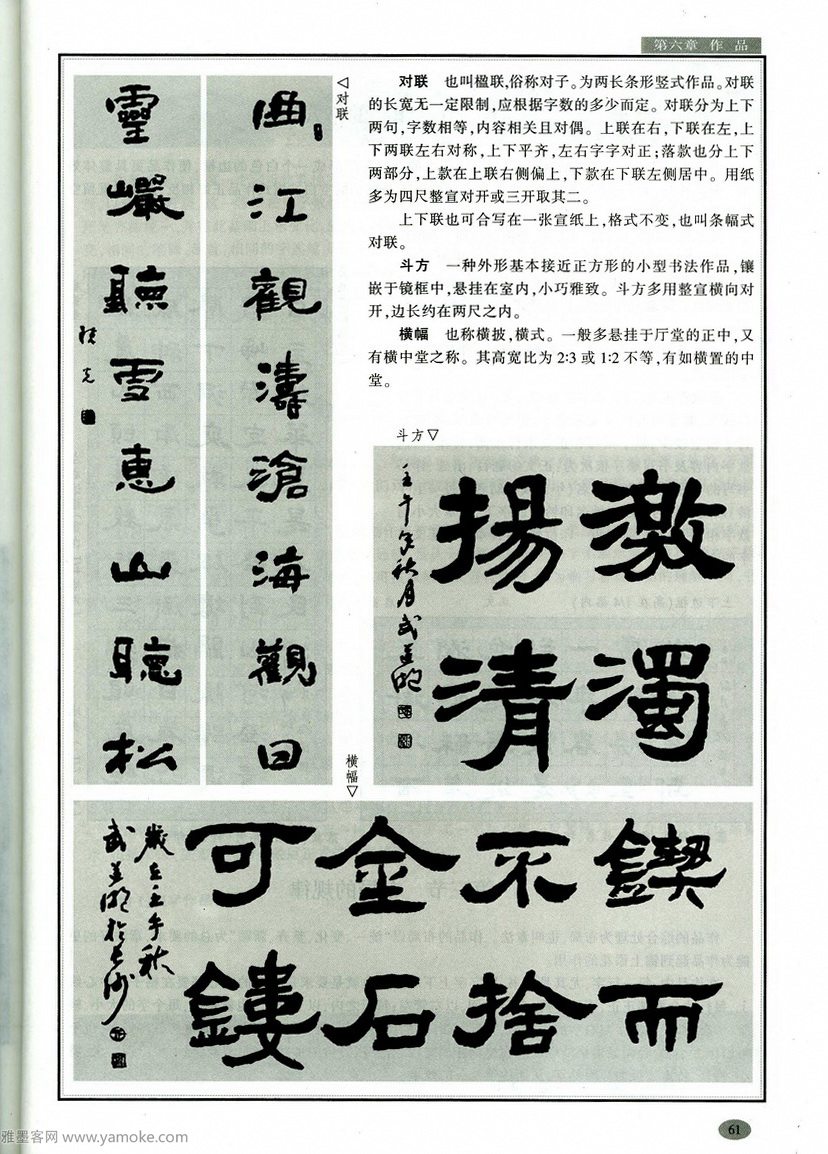 第六章 作 品
对联 也叫楹联,俗称对子。为两长条形竖式作品。对联
的长宽无一定限制,应根据字数的多少而定。对联分为上下
两句,字数相等,内容相关且对偶。上联在右,下联在左,上
下两联左右对称,上下平齐,左右字字对正;落款也分上下
两部分,上款在上联右侧偏上,下款在下联左侧居中。用纸
多为四尺整宣对开或三开取其二。
上下联也可合写在一张宣纸上,格式不变,也叫条幅式
对联。
斗方 一种外形基本接近正方形的小型书法作品,镶
嵌于镜框中,悬挂在室内,小巧雅致。斗方多用整宣横向对
开,边长约在两尺之内。
横幅 也称横披,横式。一般多悬挂于厅堂的正中,又
有横中堂之称。其高宽比为 2:3 或 1:2 不等,有如横置的中
堂。
◁对联
曲江觀濤滄海觀日
靈巖聽雪惠山聽松
斗方▽
激濁
揚清
壬午年秋月武
横幅▽
鍥而
不捨
金石
可鏤
歲在壬午秋
武
於長沙
61
雅墨客网 www.yamoke.com